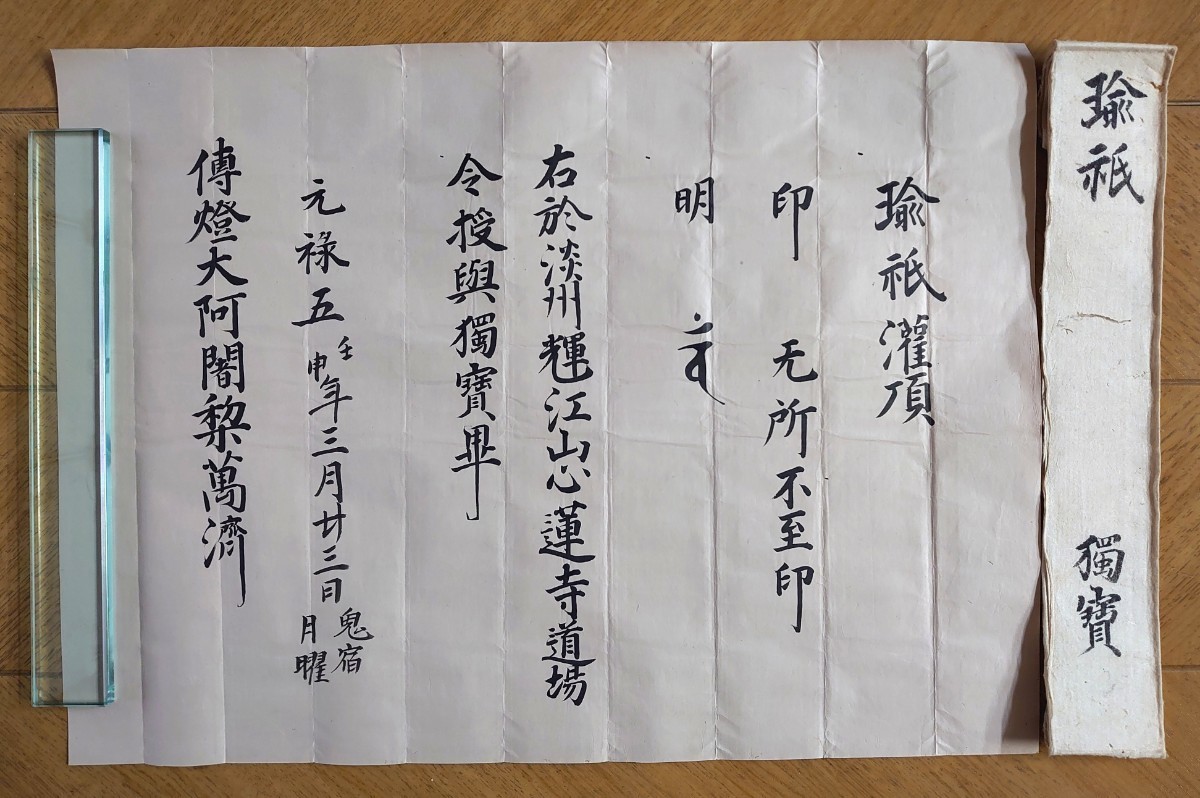 瑜祇
獨寶
瑜祇灌頂
印 无所不至印
明
右於淡州輝江山心蓮寺道場
令授與獨寶畢
元禄五壬申年三月廿三日鬼宿月曜
傳燈大阿闍梨萬濟